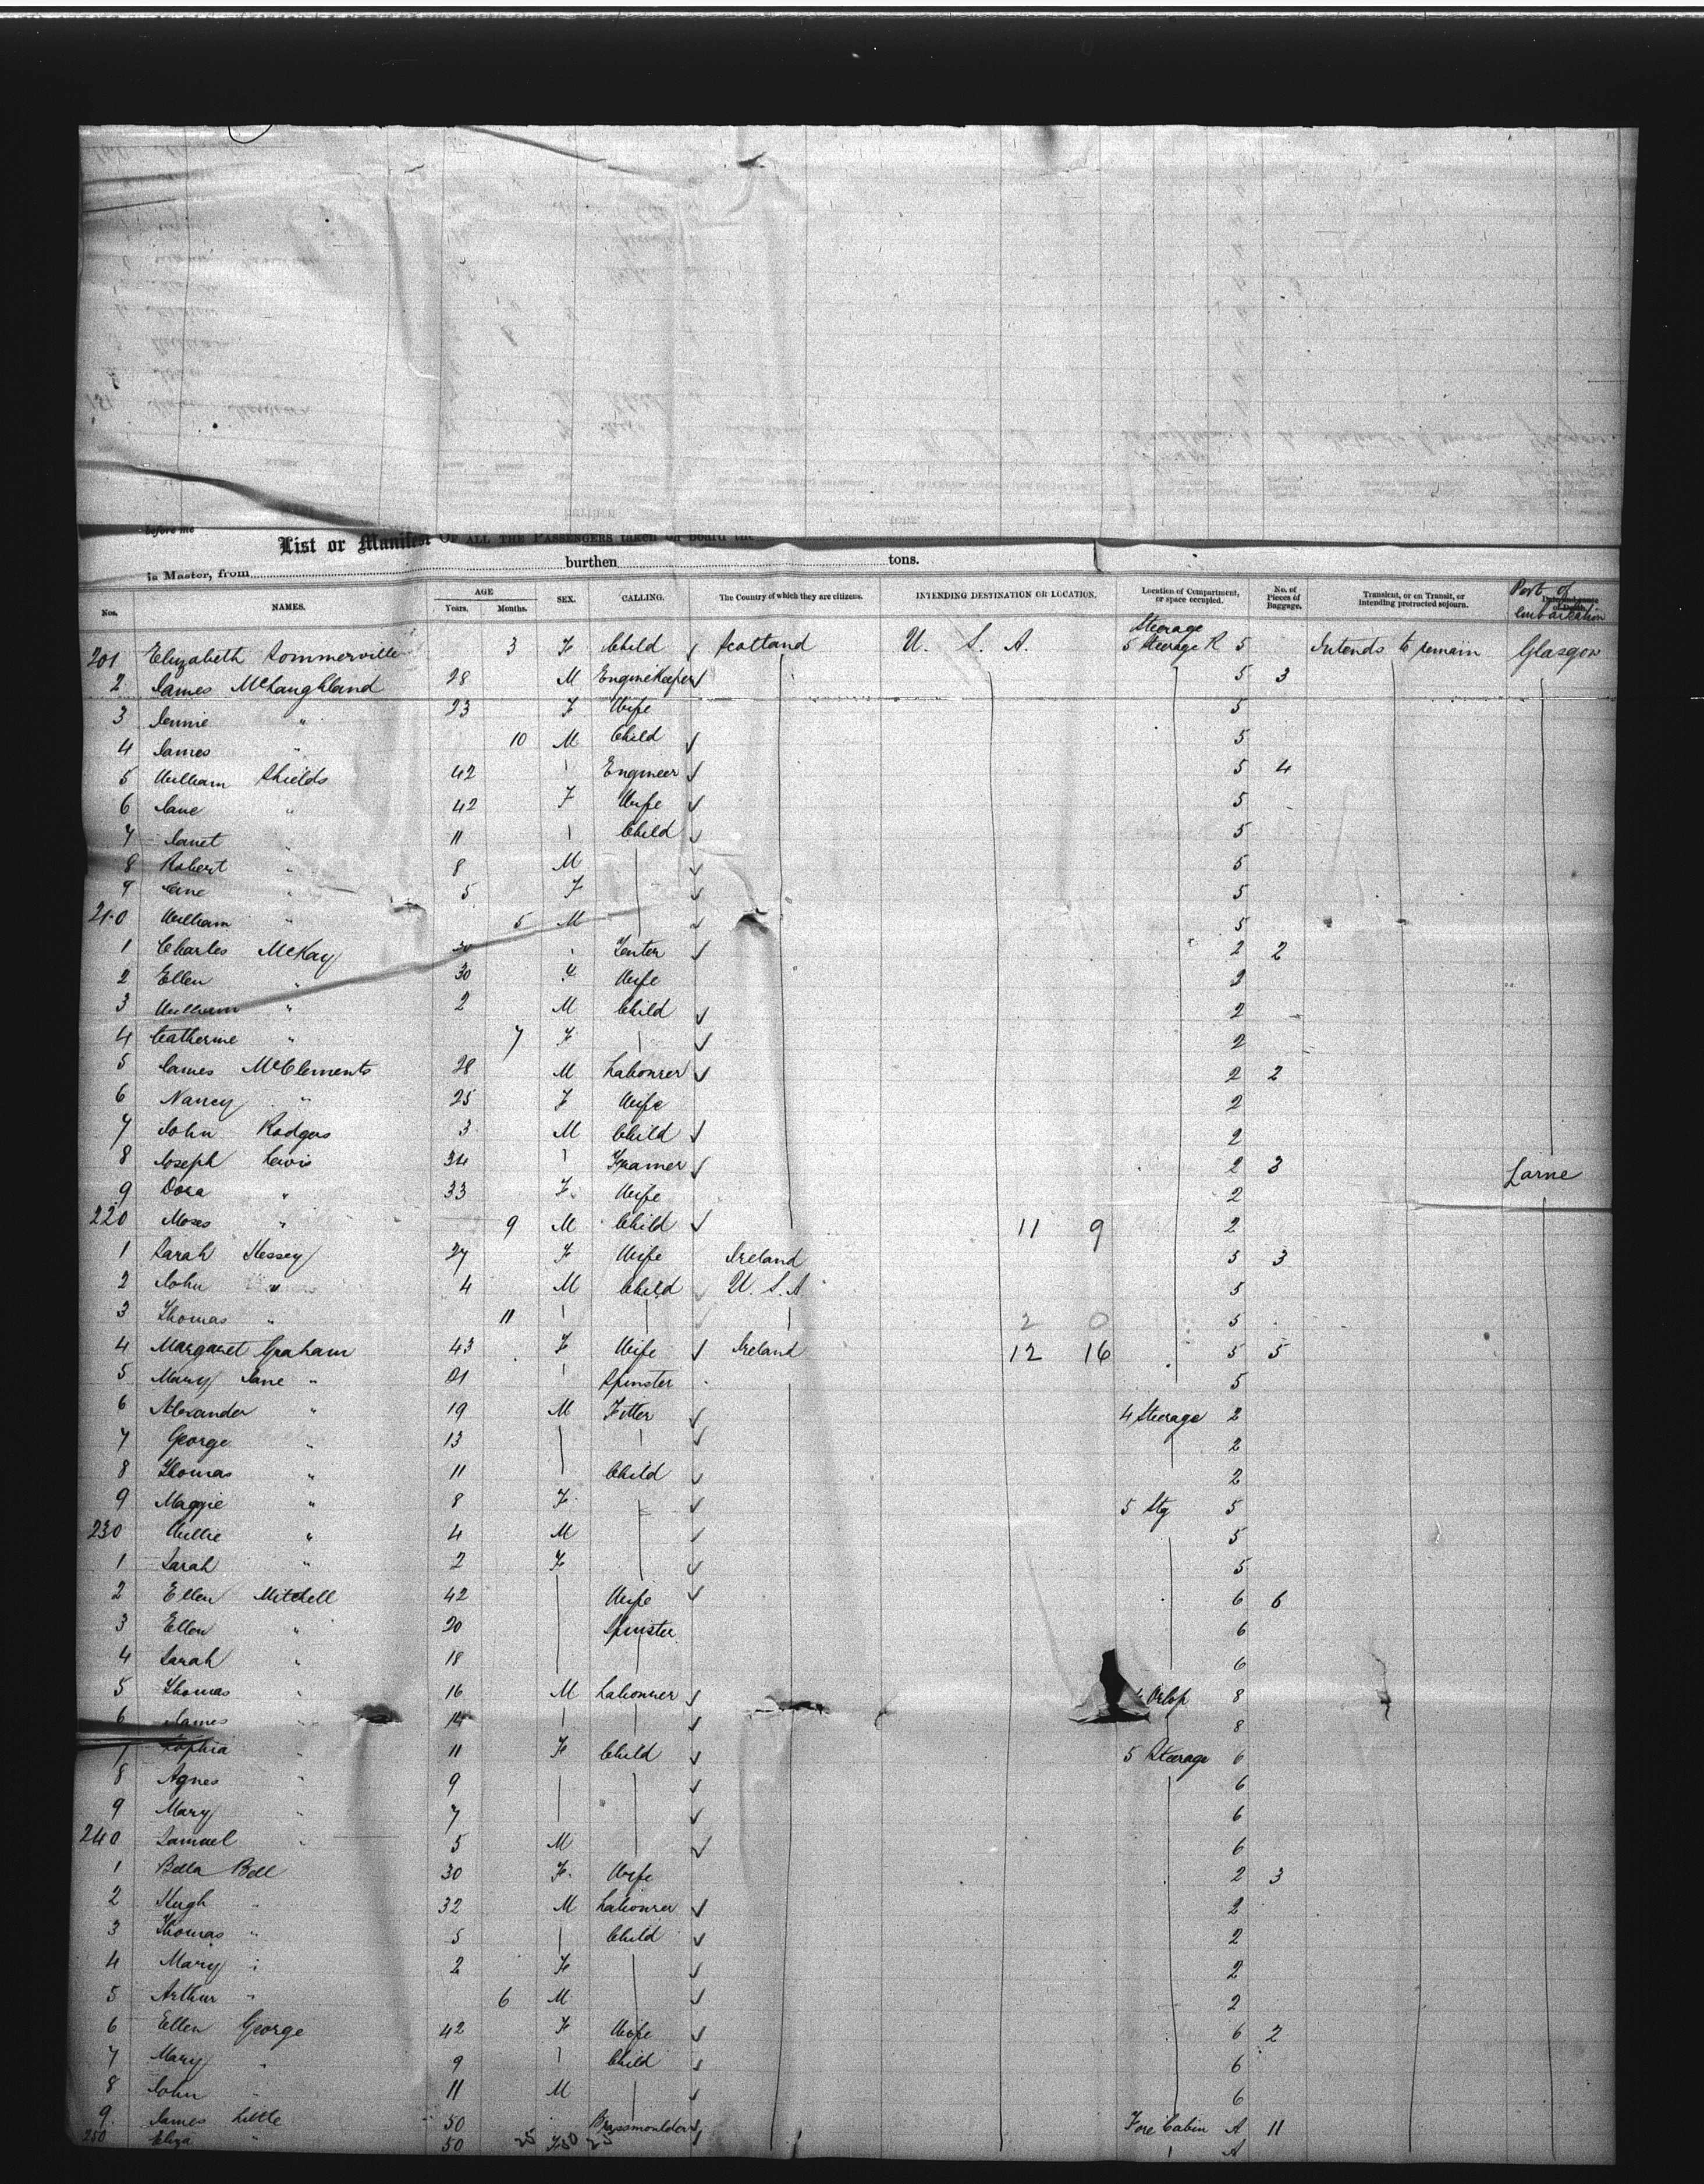 before me
List or Manifest OF ALL THE PASSENGERS taken on board the
is Master, from burthen tons.
Nos. NAMES. AGE Years. Months. SEX. CALLING. The Country of which they are citizens. INTENDING DESTINATION OR LOCATION. Location of Compartment, or space occupied. No. of Pieces of Baggage. Transient, or on Transit, or Intending protracted sojourn. Port of embarkation
Steerage
201 Elizabeth Sommerville 3 F Child Scotland U. S. A. 5 Steerage R 5 Intends to remain Glasgow
2 James McLaughland 28 M EngineKeeper 5 3
3 Jennie " 23 F Wife 5
4 James " 10 M Child 5
5 William Shields 42 Engineer 5 4
6 Jane " 42 F Wife 5
7 Janet " 11 Child 5
8 Robert " 8 M 5
9 " 5 F 5
210 William " 5 M 5
1 Charles McKay 30 Tenter 2 2
2 Ellen " 30 F Wife 2
3 William " 2 M Child 2
4 Catherine " 7 F 2
5 James McClements 28 M Labourer 2 2
6 Nancy " 25 F Wife 2
7 John Rodgers 3 M Child 2
8 Joseph Lewis 34 2 3 Larne
9 Dora " 33 F. Wife 2
220 Moses " 9 M Child 11 9 2
1 Sarah 27 F Wife Ireland 5 3
2 John " 4 M Child U. S. A 5
3 Thomas " 11 2 0 5
4 Margaret Graham 43 F Wife Ireland 12 16 5 5
5 Mary Jane " 21 Spinster 5
6 Alexander " 19 M Fitter 4 Steerage 2
7 George " 13 2
8 Thomas " 11 Child 2
9 Maggie " 8 F. 5 Stg 5
230 Willie " 4 M 5
1 Sarah " 2 F 5
2 Ellen Mitchell 42 Wife 6 6
3 Ellen " 20 Spinster 6
4 Sarah " 18 6
5 Thomas " 16 M Labourer Orlop 8
6 James " 14 8
7 Sophia " 11 F Child 5 Steerage 6
8 Agnes " 9 6
9 Mary " 7 6
240 Samuel " 5 M 6
1 Bella Bell 30 F. Wife 2 3
2 Hugh " 32 M Labourer 2
3 Thomas " 5 Child 2
4 Mary " 2 F 2
5 Arthur " 6 M 2
6 Ellen George 42 F Wife 6 2
7 Mary " 9 Child 6
8 John " 11 M 6
9. James Little 50 Brassmoulder Fore Cabin A 11
250 Eliza " 50 25 F 50 25 A